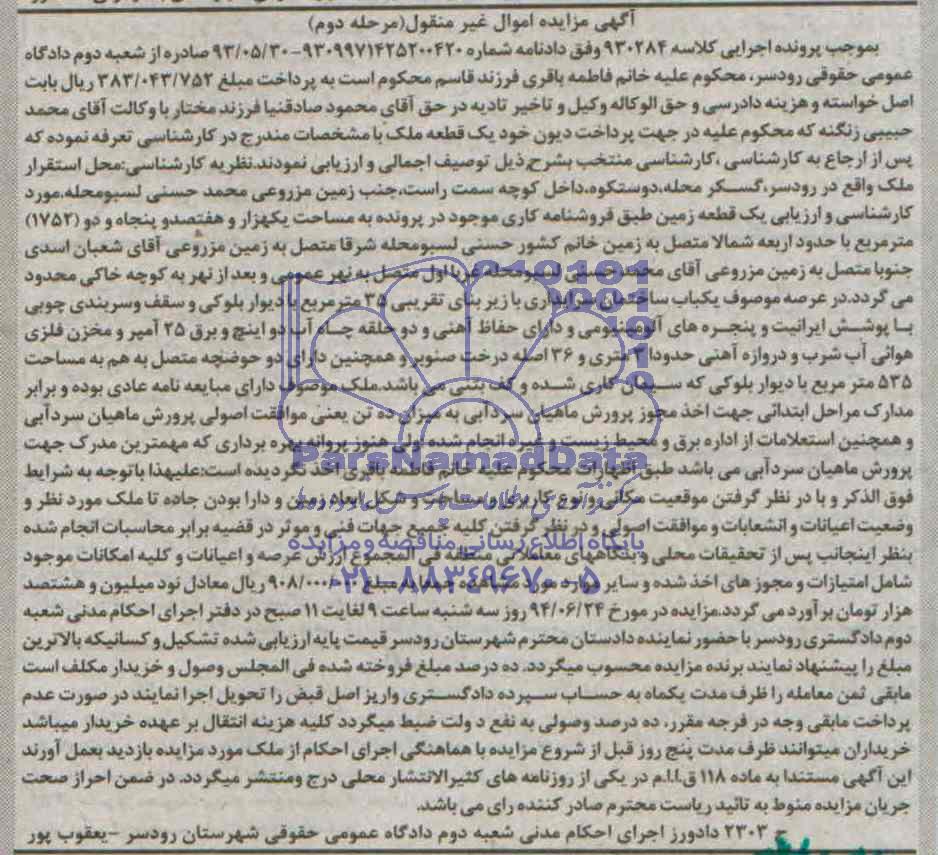 آگهی مزایده اموال غیر منقول(مرحله دوم)
بموجب پرونده اجرایی کلاسه ۹۳۰۲۸۴ وفق دادنامه شماره ۹۳۰۹۹۷۱۴۲۵۲۰۰۴۲۰-۹۳/۰۵/۳۰ صادره از شعبه دوم دادگاه
عمومی حقوقی رودسر، محکوم علیه خانم فاطمه باقری فرزند قاسم محکوم است به پرداخت مبلغ ۳۸۳/۰۴۳/۷۵۲ ریال بابت
اصل خواسته و هزینه دادرسی و حق الوکاله وکیل و تاخیر تادیه در حق آقای محمود صادقنیا فرزند مختار با وکالت آقای محمد
حبیبی زنگنه که محکوم علیه در جهت پرداخت دیون خود یک قطعه ملک با مشخصات مندرج در کارشناسی تعرفه نموده که
پس از ارجاع به کارشناسی ،کارشناسی منتخب بشرح ذیل توصیف اجمالی و ارزیابی نمودند.نظریه کارشناسی:محل استقرار
ملک واقع در رودسر،گسکر محله،دوستکوه،داخل کوچه سمت راست،جنب زمین مزروعی محمد حسنی لسبومحله.مورد
کارشناسی و ارزیابی یک قطعه زمین طبق فروشنامه کاری موجود در پرونده به مساحت یکهزار و هفتصدو پنجاه و دو (۱۷۵۲)
مترمربع با حدود اربعه شمالا متصل به زمین خانم کشور حسنی لسبومحله شرقا متصل به زمین مزروعی آقای شعبان اسدی
جنوبا متصل به زمین مزروعی آقای محمد حسنی لسبومحله غربا اول متصل به نهر عمومی و بعد از نهر به کوچه خاکی محدود
می گردد.در عرصه موصوف یکباب ساختمان سرایداری با زیر بنای تقریبی ۳۵ مترمربع با دیوار بلوکی و سقف وسربندی چوبی
با پوشش ایرانیت و پنجره های آلومینیومی و دارای حفاظ آهنی و دو حلقه چاه آب دو اینچ و برق ۲۵ آمپر و مخزن فلزی
هوائی آب شرب و دروازه آهنی حدودا ۳ متری و ۳۶ اصله درخت صنوبر و همچنین دارای دو حوضچه متصل به هم به مساحت
۵۳۵ متر مربع با دیوار بلوکی که سیمان کاری شده و کف بتنی می باشد.ملک موصوف دارای مبایعه نامه عادی بوده و برابر
مدارک مراحل ابتدائی جهت اخذ مجوز پرورش ماهیان سردآبی به میزان ده تن یعنی موافقت اصولی پرورش ماهیان سردآبی
و همچنین استعلامات از اداره برق و محیط زیست و غیره انجام شده ولی هنوز پروانه بهره برداری که مهمترین مدرک جهت
پرورش ماهیان سردآبی می باشد طبق اظهارات محکوم علیه خانم فاطمه باقری اخذ نگردیده است:علیهذا باتوجه به شرایط
فوق الذکر و با در نظر گرفتن موقعیت مکانی و نوع کاربری و مساحت و شکل ابعاد زمین و دارا بودن جاده تا ملک مورد نظر و
وضعیت اعیانات و انشعابات و موافقت اصولی و در نظر گرفتن کلیه جمیع جهات فنی و موثر در قضیه برابر محاسبات انجام شده
بنظر اینجانب پس از تحقیقات محلی و بنگاههای معاملاتی منطقه فی المجموع ارزش عرصه و اعیانات و کلیه امکانات موجود
شامل امتیازات و مجوز های اخذ شده و سایر موارد مورد مشاهده جمعا به مبلغ ۹۰۸/۰۰۰/۰۰۰ ریال معادل نود میلیون و هشتصد
هزار تومان برآورد می گردد.مزایده در مورخ ۹۴/۰۶/۲۴ روز سه شنبه ساعت ۹ لغایت ۱۱ صبح در دفتر اجرای احکام مدنی شعبه
دوم دادگستری رودسر با حضور نماینده دادستان محترم شهرستان رودسر قیمت پایه ارزیابی شده تشکیل و کسانیکه بالاترین
مبلغ را پیشنهاد نمایند برنده مزایده محسوب میگردد. ده درصد مبلغ فروخته شده فی المجلس وصول و خریدار مکلف است
مابقی ثمن معامله را ظرف مدت یکماه به حساب سپرده دادگستری واریز اصل قبض را تحویل اجرا نمایند در صورت عدم
پرداخت مابقی وجه در فرجه مقرر، ده درصد وصولی به نفع د ولت ضبط میگردد کلیه هزینه انتقال بر عهده خریدار میباشد
خریداران میتوانند ظرف مدت پنج روز قبل از شروع مزایده با هماهنگی اجرای احکام از ملک مورد مزایده بازدید بعمل آورند
این آگهی مستندا به ماده ۱۱۸ ق.ا.ا.م در یکی از روزنامه های کثیرالانتشار محلی درج ومنتشر میگردد. در ضمن احراز صحت
جریان مزایده منوط به تائید ریاست محترم صادر کننده رای می باشد.
ج ۲۳۰۳ دادورز اجرای احکام مدنی شعبه دوم دادگاه عمومی حقوقی شهرستان رودسر -یعقوب پور
ParsNamadData
پایگاه اطلاع رسانی مناقصه و مزایده
۰۲۱-۸۸۳۴۹۶۷۰-۵